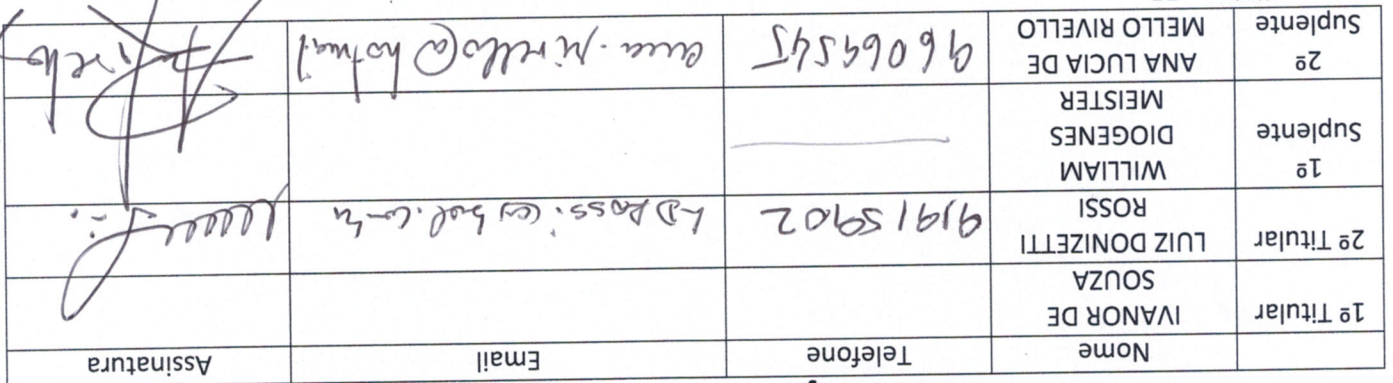 Nome Telefone Email Assinatura
1º Titular IVANOR DE
SOUZA
2º Titular LUIZ DONIZETTI
ROSSI 91915902
1º
Suplente WILLIAM
DIOGENES
MEISTER
2º
Suplente ANA LUCIA DE
MELLO RIVELLO 96069545